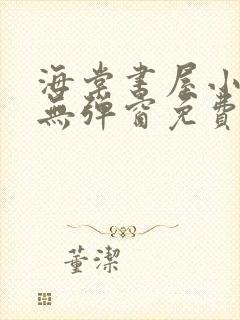 海棠書屋小
無彈窗免費
董潔